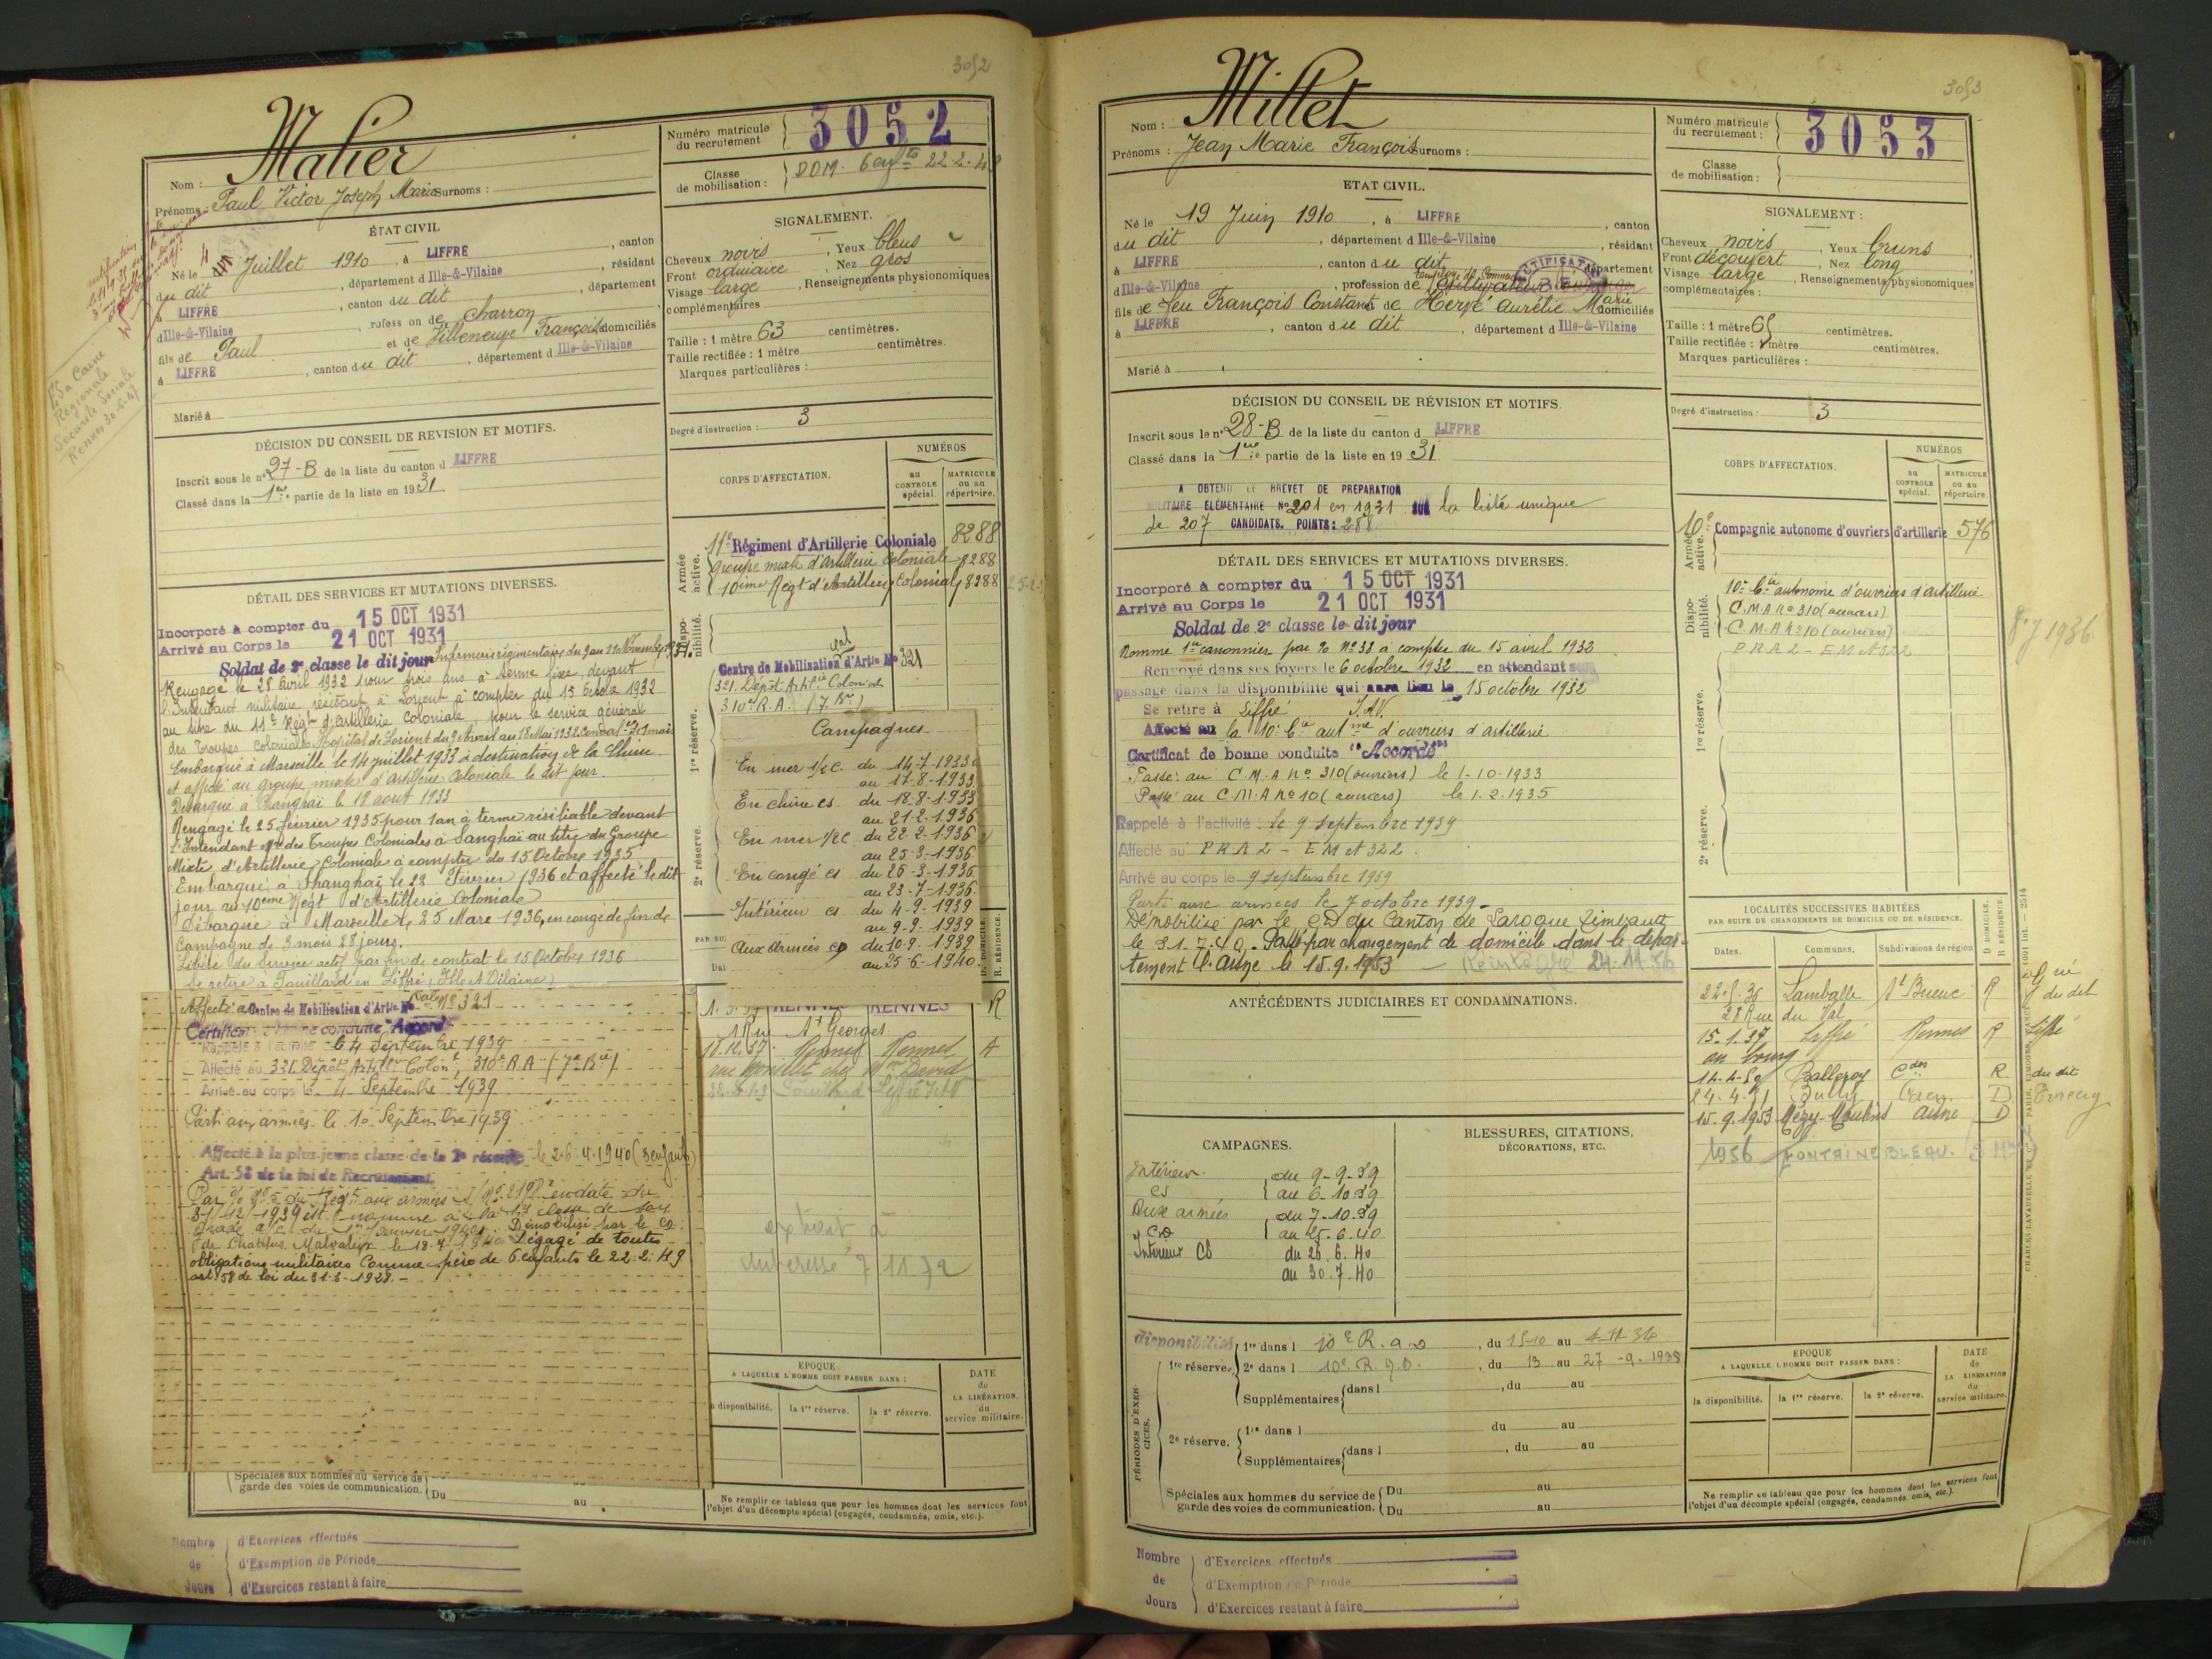 3052
Nom : Malier
Prénoms : Paul Victor Joseph Marie Surnoms :
Numéro matricule du recrutement 3052
Classe de mobilisation : DOM. 6 enfts 22-2-4
ÉTAT CIVIL
Né le 4 Juillet 1910, à LIFFRE, canton
du dit, département d Ille-&-Vilaine, résidant
à LIFFRE, canton du dit, département
d Ille-&-Vilaine, rofess on de charron
fils de Paul et de Villeneuve Françoise domiciliés
à LIFFRE, canton du dit, département d Ille-&-Vilaine
Marié à
Caisse
Régionale
Sécurité Sociale
Rennes 30-5-47
SIGNALEMENT.
Cheveux noirs, Yeux bleus
Front ordinaire, Nez gros
Visage large, Renseignements physionomiques
complémentaires
Taille : 1 mètre 63 centimètres.
Taille rectifiée : 1 mètre centimètres.
Marques particulières :
Degré d'instruction : 3
DÉCISION DU CONSEIL DE REVISION ET MOTIFS.
Inscrit sous le n° 27-B de la liste du canton d LIFFRE
Classé dans la 1re partie de la liste en 1931
CORPS D'AFFECTATION.
NUMÉROS
au CONTROLE spécial.
MATRICULE ou au répertoire.
Armée active.
11e Régiment d'Artillerie Coloniale 8288
Groupe mixte d'Artillerie Coloniale 8288
10ème Régt d'Artillerie Coloniale 8288
Disponibilité.
Centre de Mobilisation d'Artie No 321
321. Dépôt Artie Coloniale
310e R.A. (7. Bie)
1re réserve.
2e réserve.
DÉTAIL DES SERVICES ET MUTATIONS DIVERSES.
Incorporé à compter du 15 OCT 1931
Arrivé au Corps le 21 OCT 1931
Soldat de 2e classe le dit jour Infirmerie régimentaire du 9 au 11 Novembre 1931
Rengagé le 28 Avril 1932 pour trois ans à terme fixe, devant
l'Intendant militaire résidant à Lorient à compter du 15 Octobre 1932
au titre du 11e Régt d'artillerie coloniale, pour le service général
des Troupes coloniales Hopital de Lorient du 9 Avril au 18 Mai 1932
Embarqué à Marseille le 14 juillet 1933 à destination de la Chine
et affecté au groupe mixte d'artillerie Coloniale le dit jour.
Débarqué à Changhaï le 18 août 1933
Rengagé le 25 février 1935 pour 1 an à terme résiliable devant
l'Intendant Mre des Troupes Coloniales à Sanghaï au titre du Groupe
Mixte d'Artillerie Coloniale à compter du 15 Octobre 1935
Embarqué à Shanghaï le 22 Février 1936 et affecté le dit
jour au 10ème Régt d'Artillerie Coloniale
Débarqué à Marseille le 25 Mars 1936, en congé de fin de
Campagne de 3 mois 28 jours.
Libéré du Service actif par fin de contrat le 15 Octobre 1936
Se retire à Fouillard en Liffré (Ille et Vilaine)
Affecté au Centre de Mobilisation d'Artie No 321
Certificat de bonne conduite "Accordé"
Rappelé à l'activité le 4 Septembre 1939
Affecté au 321 Dépôt Artie Colon, 310e R.A. (7e Bie)
Arrivé au corps le 4 Septembre 1939
Parti aux armées le 10 Septembre 1939
Affecté à la plus jeune classe de la 2e réserve le 26.4.1940 (3 enfants)
Art. 58 de la loi de Recrutement.
31/12/1939 est nommé à la 1re classe de son
grade à c. du 1er Janvier 1940. Démobilisé par le CD
de Chatelus Malvaleix le 18-7-1940. Dégagé de toutes
obligations militaires Comme père de 6 enfants le 22.2.49
art. 58 de loi du 31-3-1928.-
Campagnes
En mer 1/2 C. du 14-7-1933
au 17-8-1933
En chine cs du 18-8-1933
au 21-2-1936
En mer 1/2 C du 22-2-1936
au 25-3-1936
En congé cs du 26-3-1936
au 23-7-1936
Intérieur cs du 4-9-1939
au 9-9-1939
Aux Armées CD du 10-9-1939
au 25-6-1940.
RENNES RENNES R
1 Rue St Georges
18.12.37 Rennes Rennes
chez Mme David
Fouillard Liffré I et V
extrait à
intéressé 7 11 72
EPOQUE A LAQUELLE L'HOMME DOIT PASSER DANS :
a disponibilité. la 1re réserve. la 2e réserve.
DATE de LA LIBÉRATION du service militaire.
Spéciales aux hommes du service de
garde des voies de communication. Du au
Ne remplir ce tableau que pour les hommes dont les services font
l'objet d'un décompte spécial (engagés, condamnés, omis, etc.).
Nombre de Jours
d'Exercices effectués
d'Exemption de Période
d'Exercices restant à faire
3053
Nom : Millet
Prénoms : Jean Marie François Surnoms :
Numéro matricule du recrutement : 3053
Classe de mobilisation :
ETAT CIVIL.
Né le 19 Juin 1910, à LIFFRE, canton
du dit, département d Ille-&-Vilaine, résidant
à LIFFRE, canton du dit, département
RECTIFICATION
d Ille-&-Vilaine, profession de employé de Commerce
fils de feu François Constant et de Hervé Aurélie Marie domiciliés
à LIFFRE, canton du dit, département d Ille-&-Vilaine
Marié à
SIGNALEMENT :
Cheveux noirs, Yeux bruns
Front découvert, Nez long
Visage large, Renseignements physionomiques
complémentaires :
Taille : 1 mètre 65 centimètres.
Taille rectifiée : 1 mètre centimètres.
Marques particulières :
Degré d'instruction : 3
DÉCISION DU CONSEIL DE RÉVISION ET MOTIFS.
Inscrit sous le n° 28-B de la liste du canton d LIFFRE
Classé dans la 1re partie de la liste en 1931
A OBTENU LE BREVET DE PREPARATION
MILITAIRE ELEMENTAIRE No 201 en 1931 SUR la liste unique
de 207 CANDIDATS. POINTS : 288.
CORPS D'AFFECTATION.
NUMÉROS
au CONTROLE spécial.
MATRICULE ou au répertoire.
Armée active.
10e Compagnie autonome d'ouvriers d'artillerie 576
Disponibilité.
10e Cie autonome d'ouvriers d'artillerie
C.M.A no 310 (ouvriers)
C.M.A no 10 (ouvriers)
PRA 2 - EM A 322
1re réserve.
2e réserve.
DÉTAIL DES SERVICES ET MUTATIONS DIVERSES.
Incorporé à compter du 15 OCT 1931
Arrivé au Corps le 21 OCT 1931
Soldat de 2e classe le dit jour
Nommé 1er canonnier par % No 38 à compter du 15 avril 1932
Renvoyé dans ses foyers le 6 octobre 1932 en attendant son
passage dans la disponibilité qui aura lieu le 15 octobre 1932
Se retire à Liffré I.&V.
Affecté au la 10e Cie autme d'ouvriers d'artillerie
Certificat de bonne conduite "Accordé"
Passé au C.M.A no 310 (ouvriers) le 1-10-1933
Passé au C.M.A no 10 (ouvriers) le 1.2.1935
Rappelé à l'activité le 9 Septembre 1939
Affecté au PRA 2 - EM A 322.
Arrivé au corps le 9 septembre 1939
Parti aux armées le 7 octobre 1939-
Démobilisé par le CD du Canton de Laroque Timbault
le 31.7.40. Passé par changement de domicile dans le dépar-
tement l'Aisne le 15.9.1953 - Réintégré 24-11-56
ANTÉCÉDENTS JUDICIAIRES ET CONDAMNATIONS.
LOCALITÉS SUCCESSIVES HABITÉES
PAR SUITE DE CHANGEMENTS DE DOMICILE OU DE RÉSIDENCE.
Dates. Communes. Subdivisions de région D DOMICILE. R RÉSIDENCE.
22.5.36 Lamballe St Brieuc R
28 Rue du Val
15-1-37 Liffré Rennes R Liffré
au bourg
14-4-50 Balleroy Cdos R du dit
24-4-51 Jully Caen D
15.9.1953 Mézy-Moulins Aisne D
1956 FONTAINEBLEAU.
CAMPAGNES.
Intérieur du 9-9-39
CS au 6-10-39
Aux armées du 7-10-39
CD au 25-6-40
Intérieur CS du 26.6.40
au 30.7.40
BLESSURES, CITATIONS, DÉCORATIONS, ETC.
PÉRIODES D'EXERCICES.
disponibilité 1re dans l 10e R.A.D, du 15-10 au 4-11-34
1re réserve. 2e dans l 10e R.A.D., du 13 au 27-9-1938
Supplémentaires dans l, du au
2e réserve. 1re dans l du au
Supplémentaires dans l, du au
Spéciales aux hommes du service de
garde des voies de communication. Du au
Du au
EPOQUE A LAQUELLE L'HOMME DOIT PASSER DANS :
la disponibilité. la 1re réserve. la 2e réserve.
DATE de LA LIBERATION du service militaire.
Ne remplir ce tableau que pour les hommes dont les services font
l'objet d'un décompte spécial (engagés, condamnés omis, etc.).
Nombre de Jours
d'Exercices effectués
d'Exemption de Période
d'Exercices restant à faire